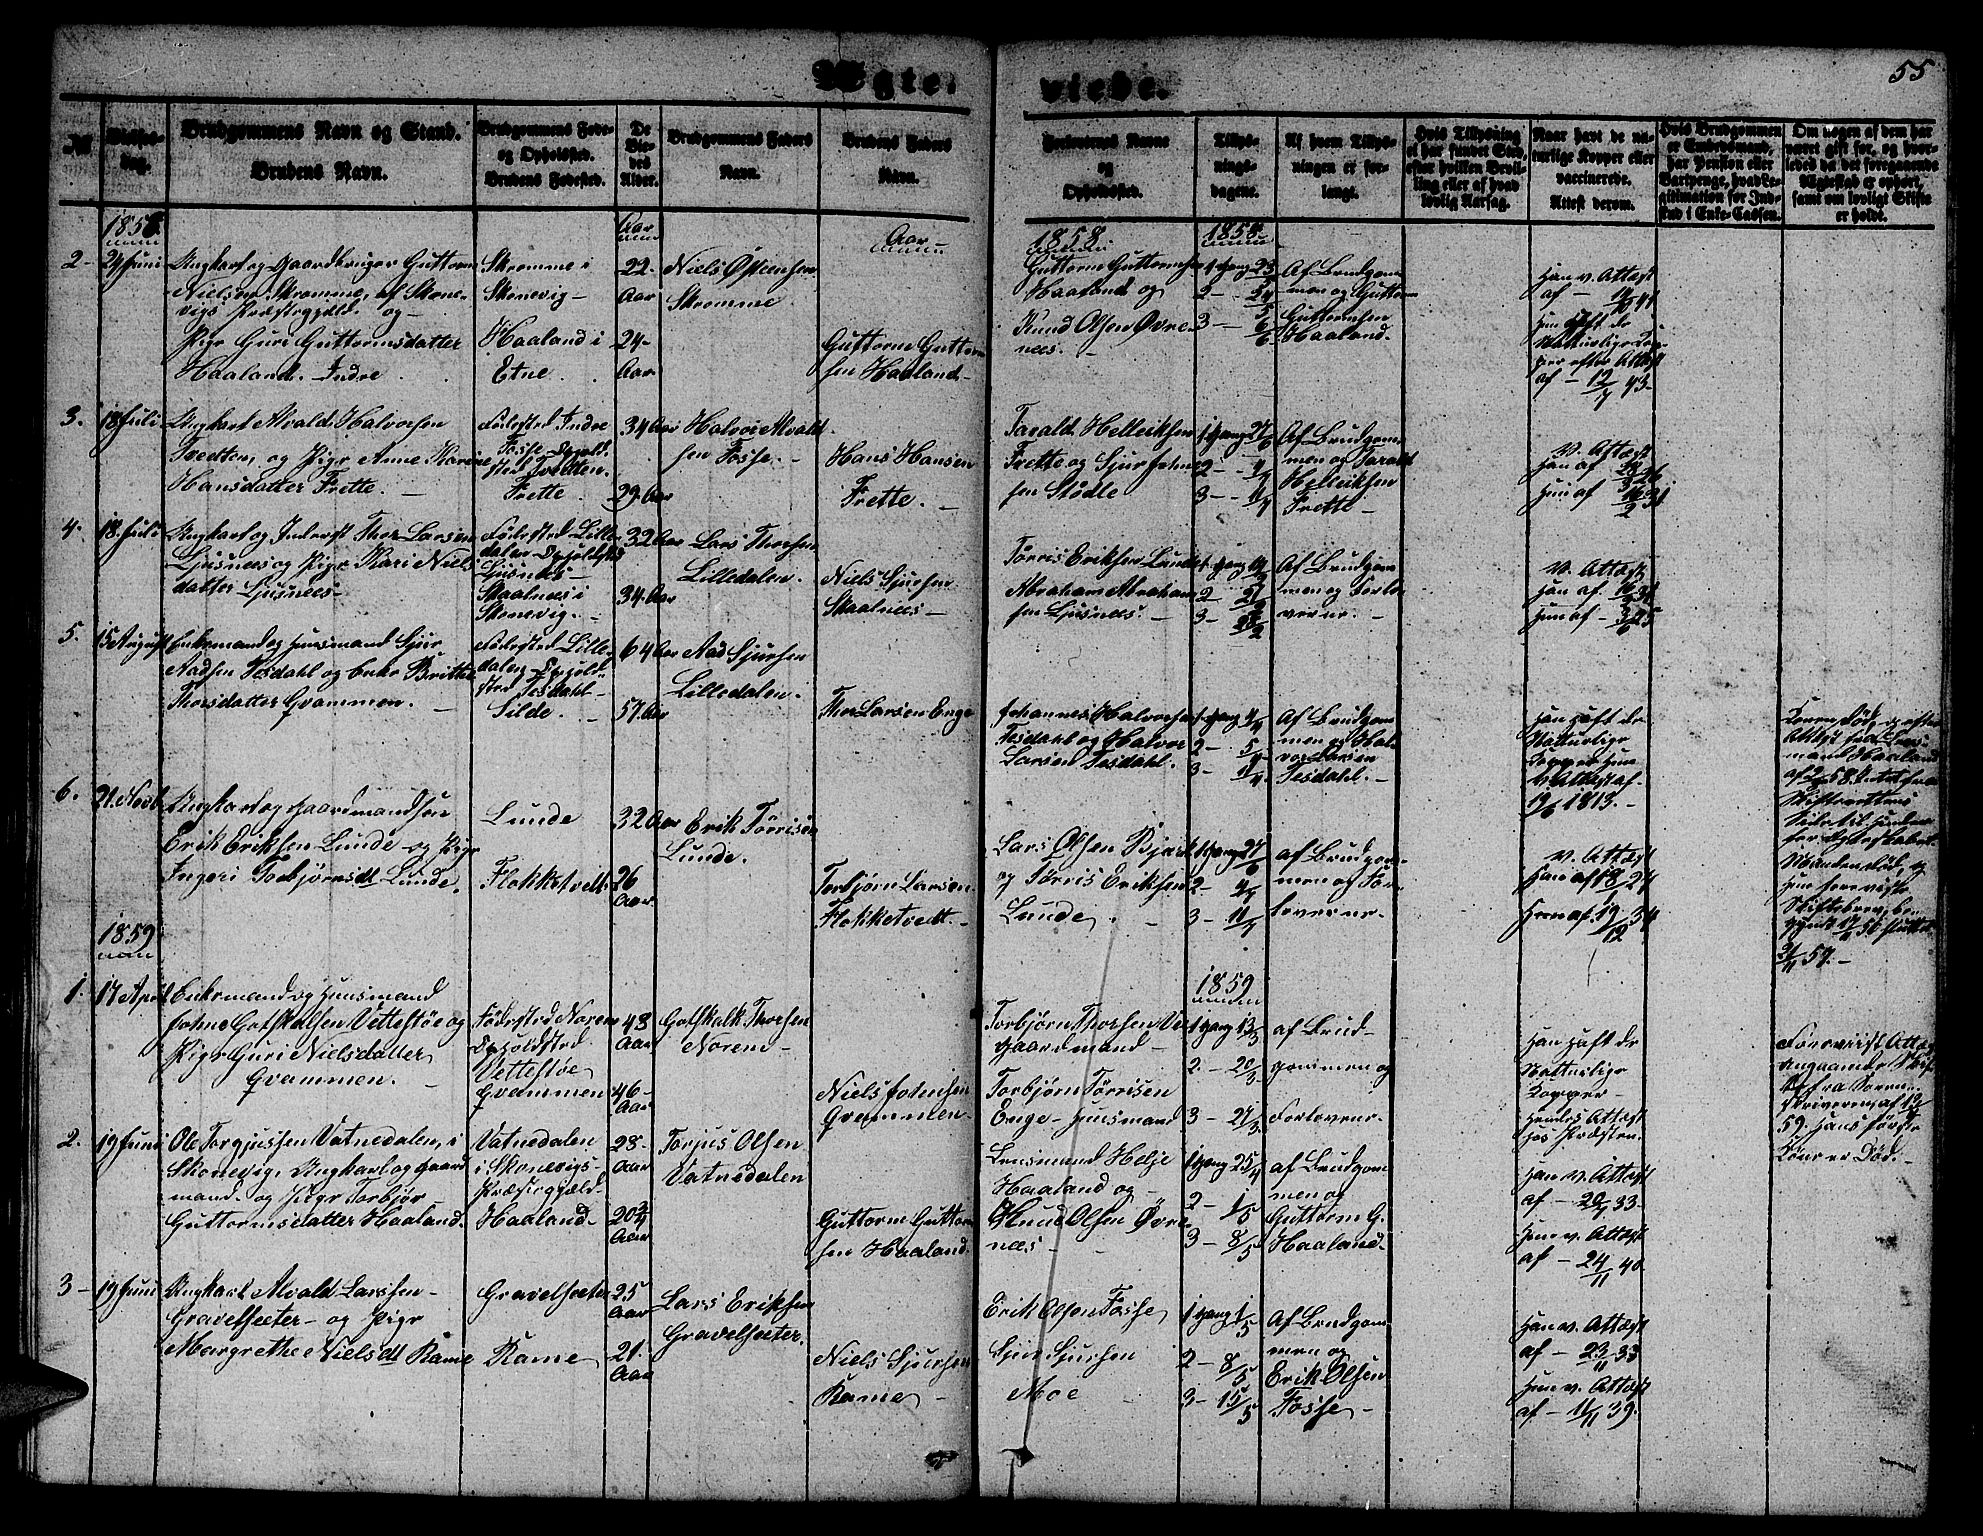 Ægte-
viede.
55
№
Vielses-
dag.
Brudgommens Navn og Stand.
Brudens Navn.
Brudgommens Føde-
og Opholdsted.
Brudens Fødested.
De
Vie-
des
Alder.
Brudgommens Faders
Navn.
Brudens Faders
Navn.
Forlovernes Navne
og
Opholdsted.
Tillys-
nings-
dagene.
Af hvem Tillys-
ningen er for-
langt.
Hvis Tillysning
ei har fundet Sted,
efter hvilken Bevil-
ling eller af hvad
lovlig Aarsag.
Naar havt de na-
turlige Kopper eller
vaccinerede.
Attest derom.
Hvis Brudgommen
er Embedsmand,
har Pension eller
Vartpenge, hvad Le-
gitimation for Ind-
skud i Enke-Cassen.
Om nogen af dem har
været gift før, og hvor-
ledes da det foregaaende
Ægteskab er ophørt,
samt om lovligt Skifte
er holdt.
1858
Aar
Aar
1858
1858
2-
24 Juni
Ungkarl og Gaardbruger Guttorm
Nielsen Skromme, af Skone-
vigs Præstegjæld og
Pige Guri Guttormsdatter
Haaland. Indre
Skromme i
Skonevig
Haaland i
Etne
22-
Aar
24-
Aar
Niels Østensen
Skromme
Guttorm Guttorm
sen Haaland
Guttorm Guttormsen
Haaland og
Knud Olsen Øvre-
nees.
1 gang 23/5
2- 24/5
3- 6/6
Af Brudgom
men og Guttorm
Guttormsen
Haaland.
Han v. Attest
af
Hun haft de
Naturlige Kop-
per efter Attest
af - 12/7 43-
3.
18 Juli
Ungkarl Alvald Halvorsen
Tvedten, og Pige Anne Karine
Hansdatter Frette.
Fødested Indre
Fosse Ophold-
sted Tvedten.
Frette
34 Aar
29 Aar
Halvor Alvald
sen Fosse.
Hans Hansen
Frette.
Tarald Helleiksen
Frette og Sjur Johne
sen Stødle
1 gang 27/6
2- 4/7
3- 11/7
Af Brudgom
men og Tarald
Helleiksen
Frette
V. Attest
Han af
Hun af
4.
18 Juli
Ungkarl og Inderst Thor Larsen
Ljusnees og Pige Kari Niels
datter Ljusnees
Fødested Lille-
dalen Opholdsted
Ljusnees
Skaalnees i
Skonevig.
32 Aar
34 Aar
Lars Thorsen
Lilledalen.
Niels Sjursen
Skaalnees
Tørris Eriksen Lunde
Abraham Abraham
sen Ljusnees.
1 gang
2-
3-
Af Brudgom
men og Forlo
verne.
V. Attest
Han af
Hun af
5.
15 August
Enkemand og Huusmand Sjur
Aadsen Tesdahl og Enke Britthe
Thorsdatter Qvammen.
Fødested Lille-
dalen Ophold-
sted Tesdahl
Silde.
64 Aar
57 Aar
Aad Sjursen
Lilledalen.
Thor Larsen Enge
Johannes Halvorsen
Tesdahl og Halvor
Larsen Tesdahl.
1 gang 4/7
2-
3- 11/7
Af Brudgom
men og Hal-
vor Larsen
Tesdahl.
Han haft de
Naturlige
Kopper Hun
v. Attest af
1813.
Konen død, og efter
Attest fra Lens-
mand Haaland
Manden død, og
Hun foreviste
Skiftebrev, be-
gyndt
6.
21. Novb
Ungkarl og Gaardmandsøn
Erik Eriksen Lunde og Pige
Ingeri Torbjørnsdt Lunde.
Lunde
Flokketvedt
32 Aar
26
Aar
Erik Tørrisen
Lunde.
Torbjørn Larsen
Flokketvedt.
Lars Olsen
og Tørris Eriksen
Lunde
1 gang 27/6
2- 4/7
3- 11/7
af Brudgom-
men og For-
loverne.
v. Attest
Han af
Hun af 19/12 34
1859
1859
1.
17 April
Enkemand og Huusmand
Johne Gotskalksen Vettestøe og
Pige Guri Nielsdatter
Qvammen.
Fødested Norem
Opholdsted
Vettestøe
Qvammen
48
Aar
46-
Aar
Gotskalk Thorsen
Norem
Niels Johnsen
Qvammen
Torbjørn Thorsen
gaardmand
Torbjørn Tørrisen
Enge Huusmand
1 gang 13/3
2.- 20/3
3- 27/3
af Brud-
gommen og
Forloverne
Han haft de
Naturlige
Kopper
Hendes Attest
hos Præsten.
Foreviist Attest
angaaende Skif
te fra Soren-
skriveren, af
59. Hans første
Kone er Død.
2.
19 Juni
Ole Torgjussen Vatnedalen, i
Skonevig, Ungkarl og Gaard
mand og Pige Torbjør
Guttormsdatter Haaland.
Vatnedalen
i Skonevigs-
Præstegjæld
Haaland
28-
Aar
20¾
Aar
Torjus Olsen
Vatnedalen
Guttorm Guttorm
sen Haaland.
Lensmand Helje
Haaland og
Knud Olsen Øvre
nees
1 gang 25/4
2- 1/5
3- 8/5
af Brudgom
men og
Guttorm G.
Haaland.
Han v. Attest
af - 33-
Hun v. Attest
af - 24/11 40
3-
19 Juni
Ungkarl Alvald Larssen
Gravelsæter og Pige
Margrethe Nielsdt Rame
Gravelsæter
Rame
25
Aar
21.
Aar
Lars Eriksen
Gravelsæter.
Niels Sjursen
Rame
Erik Olsen Fosse
Sjur Sjursen
Moe
1 gang 1/5
2- 8/5
3- 15/5
Af Brudgom
men og
Erik Olsen
Fosse
Han v. Attest
af - 23/11 33
Hun v. Attest
af - 11/11 39.